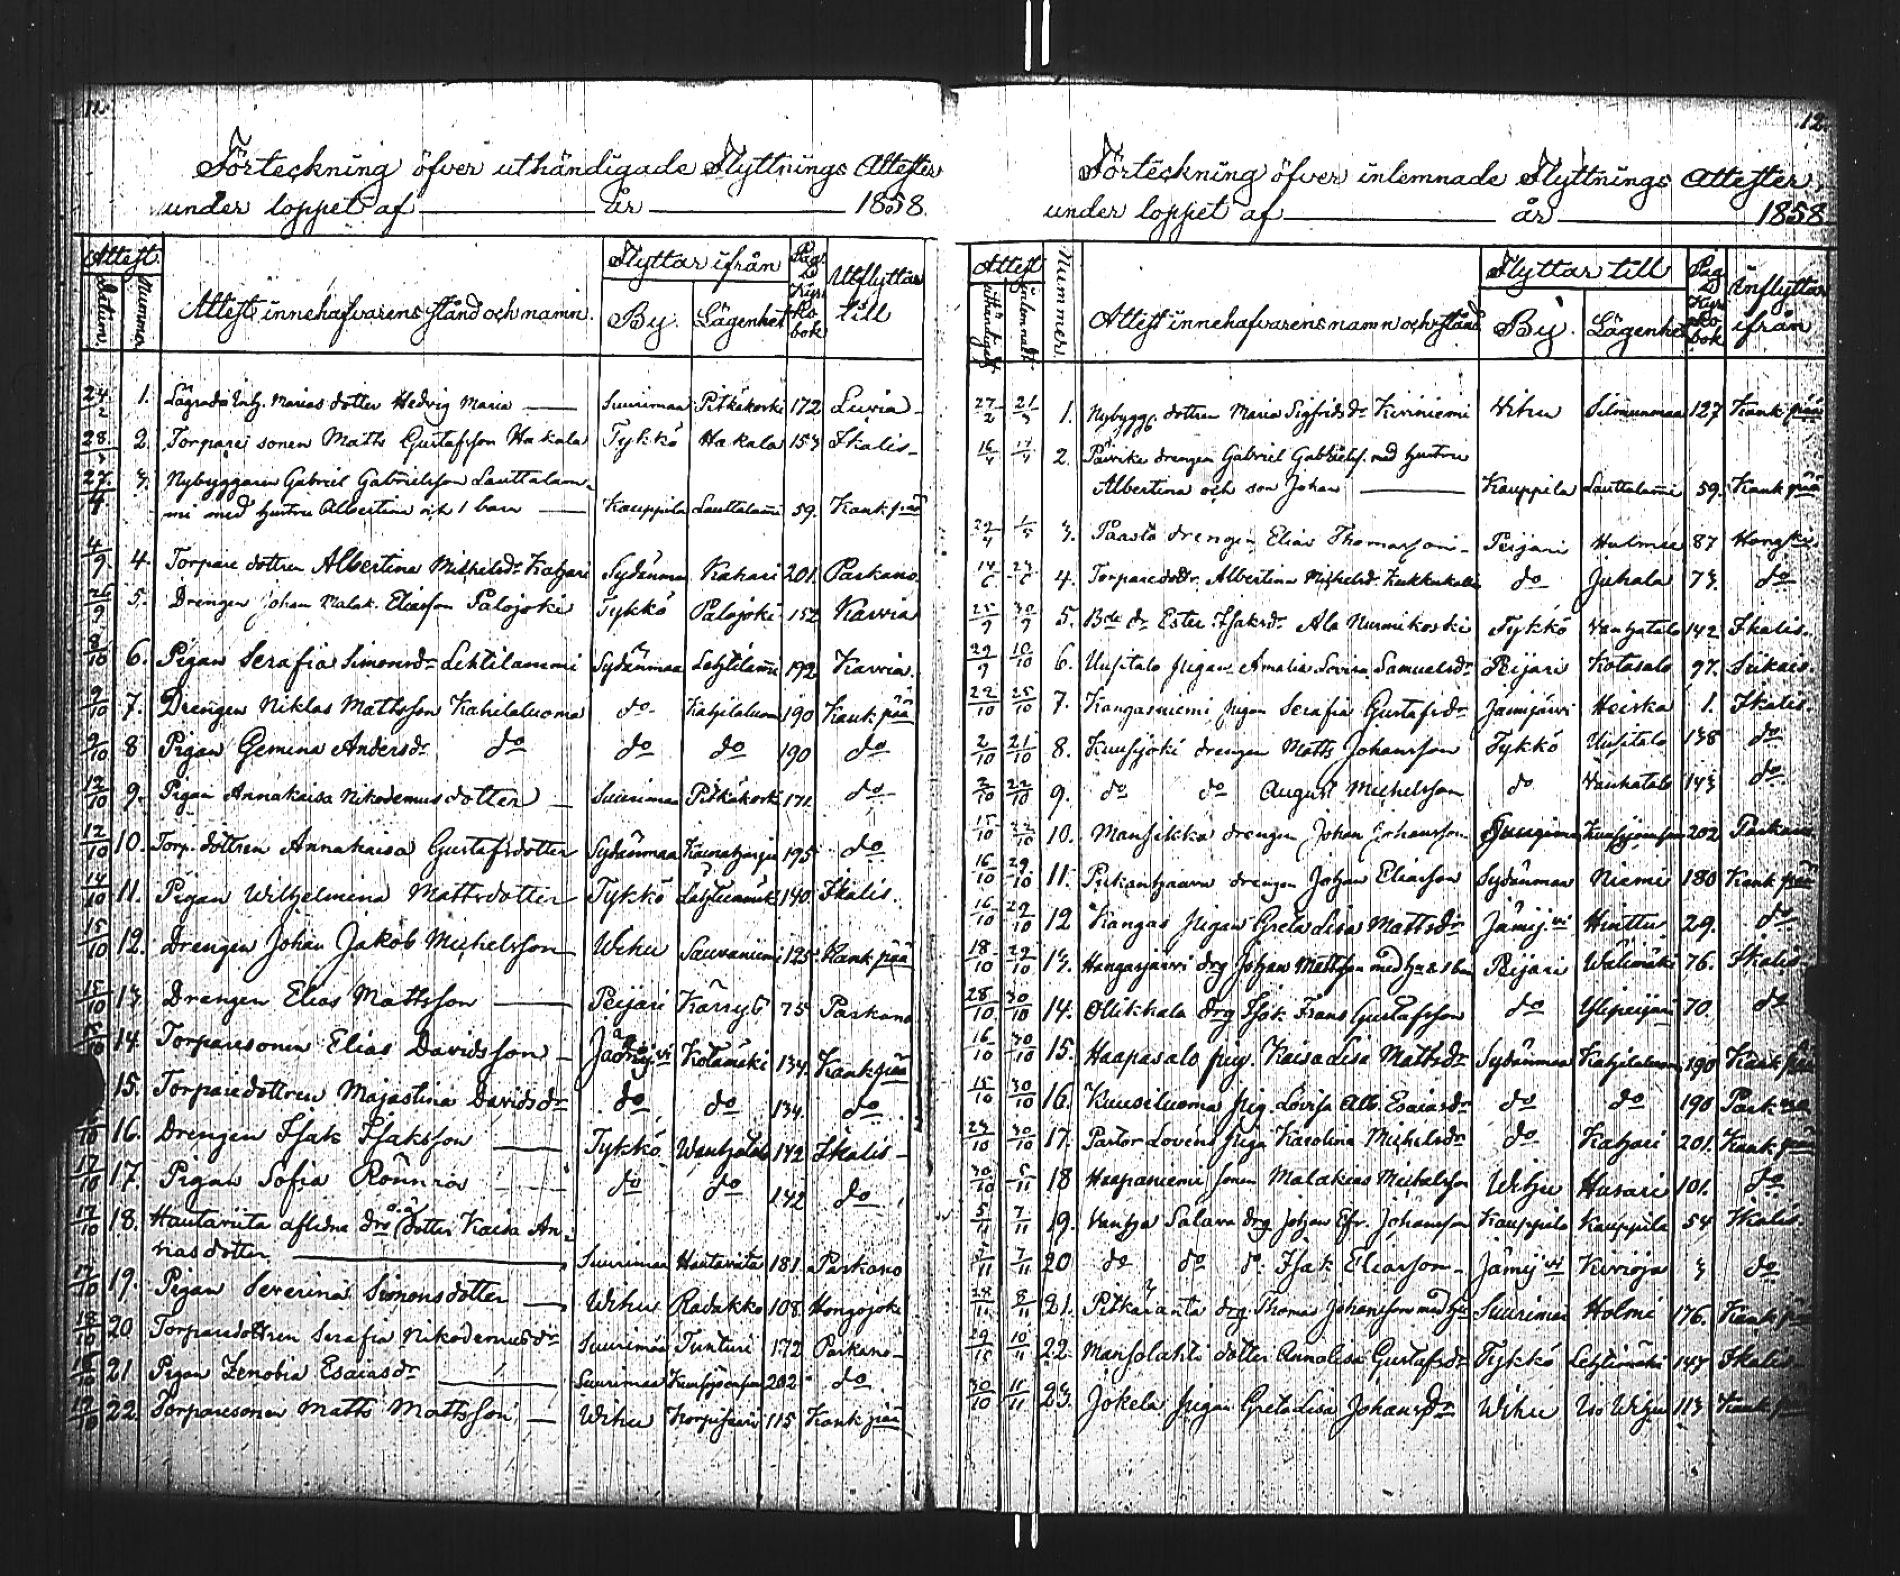 12.
Förteckning öfver uthändigade Flyttnings Attester
under loppet af år 1858.
Attest.
Datum.
Nummer.
Attest innehafvarens stånd och namn.
Flyttar ifrån
By.
Lägenhet
Pag. i Kyrko bok
Utflyttar till
24/2 1. Maria dotter Hedvig Maria Suurimaa Pitkäkoski 172 Luvia
28 2. Torpare sonen Matts Gustafsson Hakala Tykkö Hakala 153 Ikalis
27/4 3. Nybyggaren Gabriel Gabrielsson Lauttalam-
mi med hustru Albertina och 1 barn Kauppila Lauttalami 59. Kankpää
4/9 4. Torpare dottren Albertina Michelsdr Kahari Sydänmaa Kahari 201. Parkano
26/9 5. Drengen Johan Malak. Eliasson Palojoki Tykkö Palojoki 152 Karvia
8/10 6. Pigan Serafia Simonsdr Lehtilammi Sydänmaa Lehtilami 192 Karvia.
9/10 7. Drengen Niklas Mathsson Kahilaluoma do Kahilaluom 190 Kankpää
9/10 8 Pigan Gemina Andersdr do do do 190 do
12/10 9. Pigan Annakaisa Nikodemusdotter Suurimaa Pitkäkoski 171. do
12/10 10. Torp. dottren Annakaisa Gustafsdotter Sydänmaa 195 do
14/10 11. Pigan Wilhelmina Mattsdotter Tykkö 140. Ikalis.
15/10 12. Drengen Johan Jakob Michelsson Wihu Sauvaniemi 125. Kankpää
15/10 13 Drengen Elias Mattsson Peijari Kärry 75 Parkano
14. Torparesonen Elias Davidsson Jämij.vi Kotamäki 134. Kankpää
15. Torparedottren Majastina Davidsdr do do 134. do
16. Drengen Isak Isaksson Tykkö Wanhatalo 142 Ikalis
17/10 17. Pigan Sofia Rönnroo do do 142 do
17/10 18. Hautaviita aflidne drs dotter Kaisa An-
nasdotter Suurimaa Hautaviita 181. Parkano
17/10 19. Pigan Severina Simonsdotter Wihu Radakko 108. Hongojoki
18/10 20 Torparedottren Serafia Nikodemusdr Suurimaa Tunturi 172 Parkano
21 Pigan Zenobia Esaiasdr Suurimaa 202 do
22 Torparesonen Matts Mattsson Wihu Korpisaari 115 Kankpää
12.
Förteckning öfver inlemnade Flyttnings Attester.
under loppet af år 1858
Attest
uthändigadt
inlemnadt
Nummer.
Attest innehafvarens namn och stånd
Flyttar till
By.
Lägenhet
Pag. i Kyrko bok
Inflyttar ifrån
27/2 21/3 1. Nybygg. dottren Maria Sigfridsdr Kiviniemi Wihu Silmunmaa 127 Kankpää
16/4 17/4 2. drengen Gabriel Gabrielss. med hustru
Albertina och son Johan Kauppila Lauttalami 59. Kankpää
29/4 1/5 3. Paasto drengen Elias Thomasson Peijari 87
4. Torparedottr. Albertina Michelsdr do Juhala 73. do
25/9 30/9 5. Ester Isaksdr Ala Nurmikoski Tykkö Wanhatalo 142 Ikalis.
29/9 10/10 6. Uusitalo pigan Amalia Lovisa Samuelsdr Peijari Kotasalo 97.
22/10 25/10 7. Kangasniemi pigan Serafia Gustafsdr Jämijärvi Heiska 1. Ikalis.
2/10 21/10 8. Kuusijoki drengen Matts Johansson Tykkö Uusitalo 138 do
2/10 22/10 9. do do August Michelsson do Wanhatalo 143 do
15/10 22/10 10. Mansikka drengen Johan Johansson 202 Parkano
16/10 29/10 11. drengen Johan Eliasson Sydänmaa Niemi 180 Kankpää
16/10 29/10 12 Kangas pigan Greta Lisa Mattsdr Jämij.vi Hinttu 29. do
18/10 29/10 13. Hangasjärvi drg Johan Mattsson med hu & 1 barn Peijari Wälimäki 76. Ikalis
28/10 30/10 14. Ollikkala drg Isak Frans Gustafsson do Ylipeijari 70. do
16/10 30/10 15. Haapasalo pig. Kaisa Lisa Mattsdr Sydänmaa Kahilaluom 190 Kankpää
15/10 30/10 16. Kuusiluoma pig. Lovisa Alb. Esaiasdr do do 190 Parkano
23/10 30/10 17. Pastor Lovéns piga Karolina Michelsdr do Kahari 201. Kankpää
30/10 5/11 18 Haapaniemi sonen Malakias Michelsson Wihu Husari 101. do
5/11 7/11 19. Vanha Salava drg Johan Efr. Johansson Kauppila Kauppila 54 Ikalis.
5/11 7/11 20 do do do Isak Eliasson Jämij.vi Kivioja 3 do
8/11 21. Pitkäranta drg Thomas Johansson med hu Suurimaa Holmi 176. Kankpää
29/10 10/11 22. Mansolahti dotter Annalisa Gustafsdr Tykkö Lehtimäki 147 Ikalis
30/10 11/11 23. Jokela pigan Greta Lisa Johansdr Wihu Iso Wihu 113 Kankpää